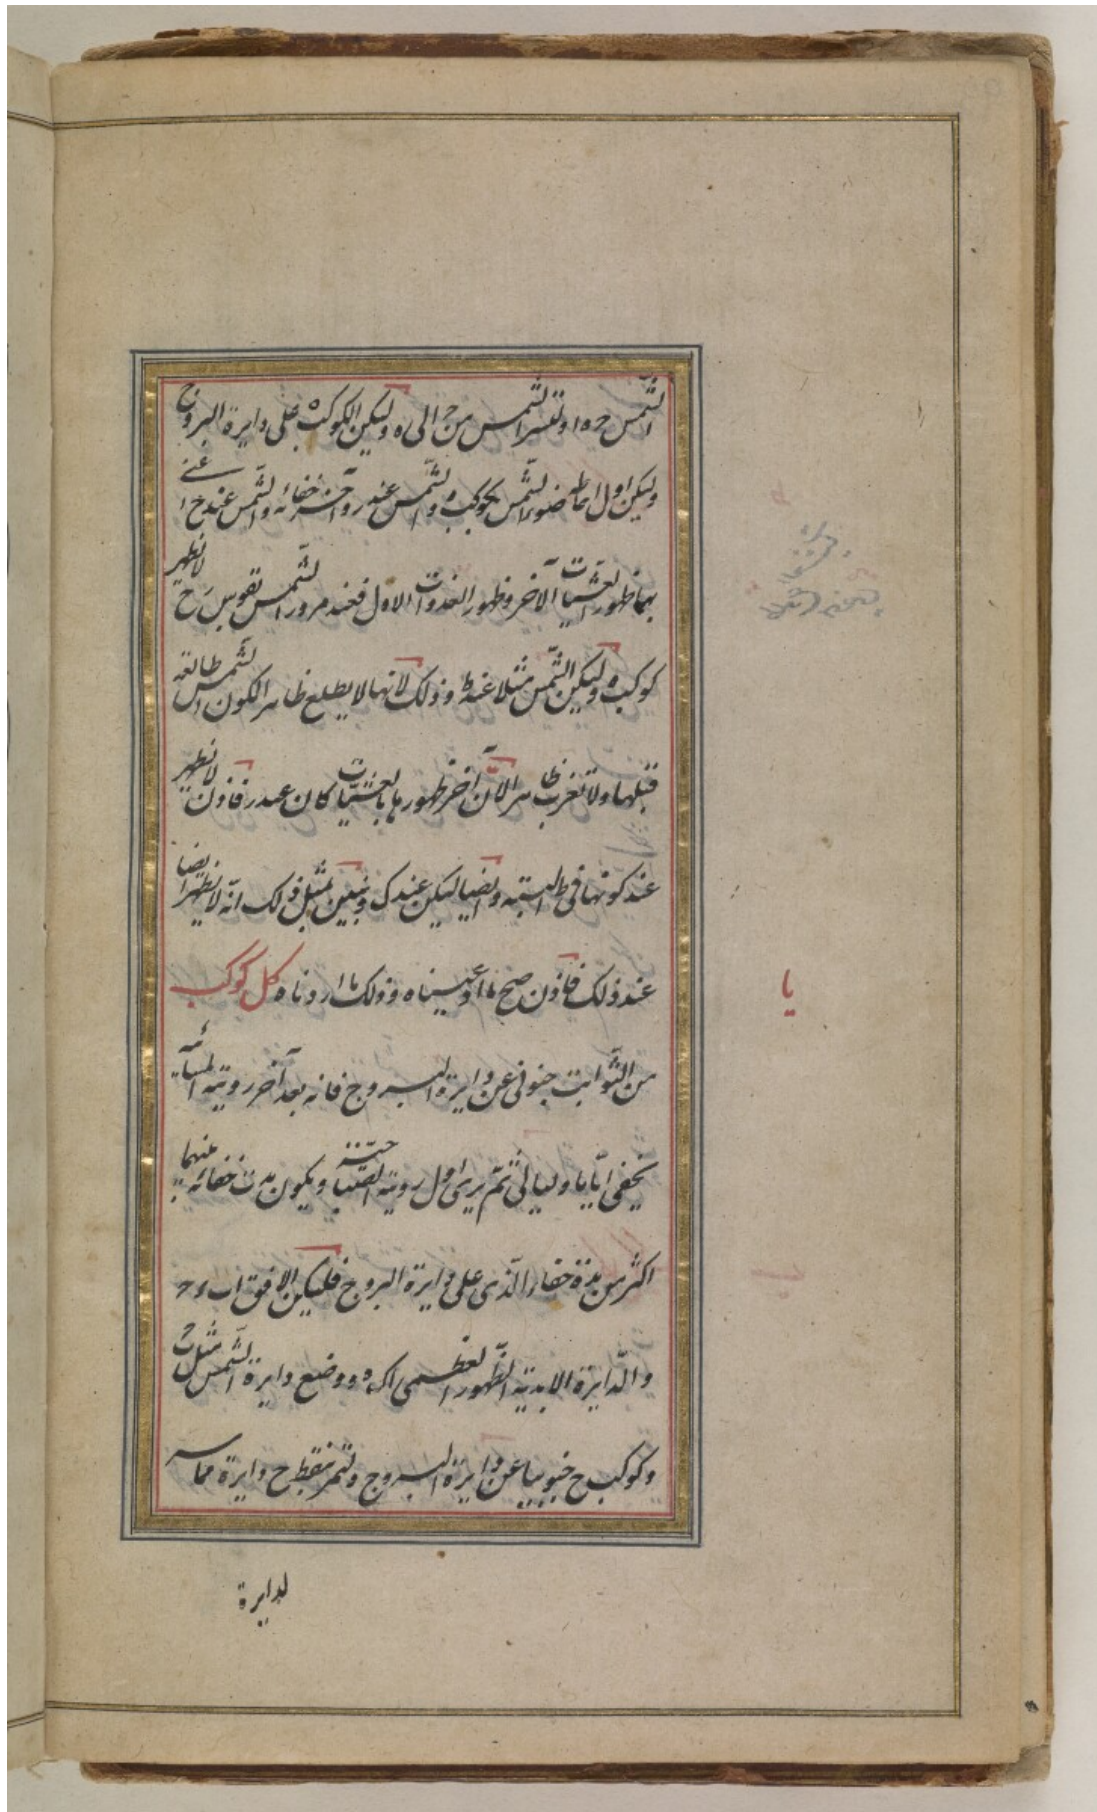 الشمس ح ه ا ولتسر الشمس من ح الى ه وليكن الكوكب ه على دايرة البروج
وليكن اول احاطة ضوء الشمس بكوكب ه والشمس عند ر وآخر خفائه والشمس عند ح اعنى
بهما ظهور العشيات الآخر وظهور الغدوات الاول فعند مرور الشمس بقوس رح لا يظهر
كوكب ه وليكن الشمس مثلا عند ط وذلك لانها لا يطلع ظاهرا لكون الشمس طالعة
قبلها ولا تغرب ظاهرا لان آخر ظهورها بالعشيات كان عند ر فاذن لا يظهر
عند كونها فى ط البتة وايضا ليكن عند ك ونبين بمثل ذلك انه لا يظهر ايضا
عند ذلك فاذن صح ما ادعيناه وذلك ما اردناه كل كوكب
يا
من الثوابت جنوبى عن دايرة البروج فانه بعد آخر رويته المسائية
يخفى اياما وليالى ثم يرى اول رويته الصباحية ويكون مدة خفائه بينهما
اكثر من مدة خفاء الذى على دايرة البروج فليكن الافق ا ب ح
والدايرة الابدية الظهور العظمى ا ك ه ووضع دايرة الشمس مثل ح
وكوكب ح جنوبيا عن دايرة البروج ولتمر بنقطة ح دايرة مماسة
لدايرة